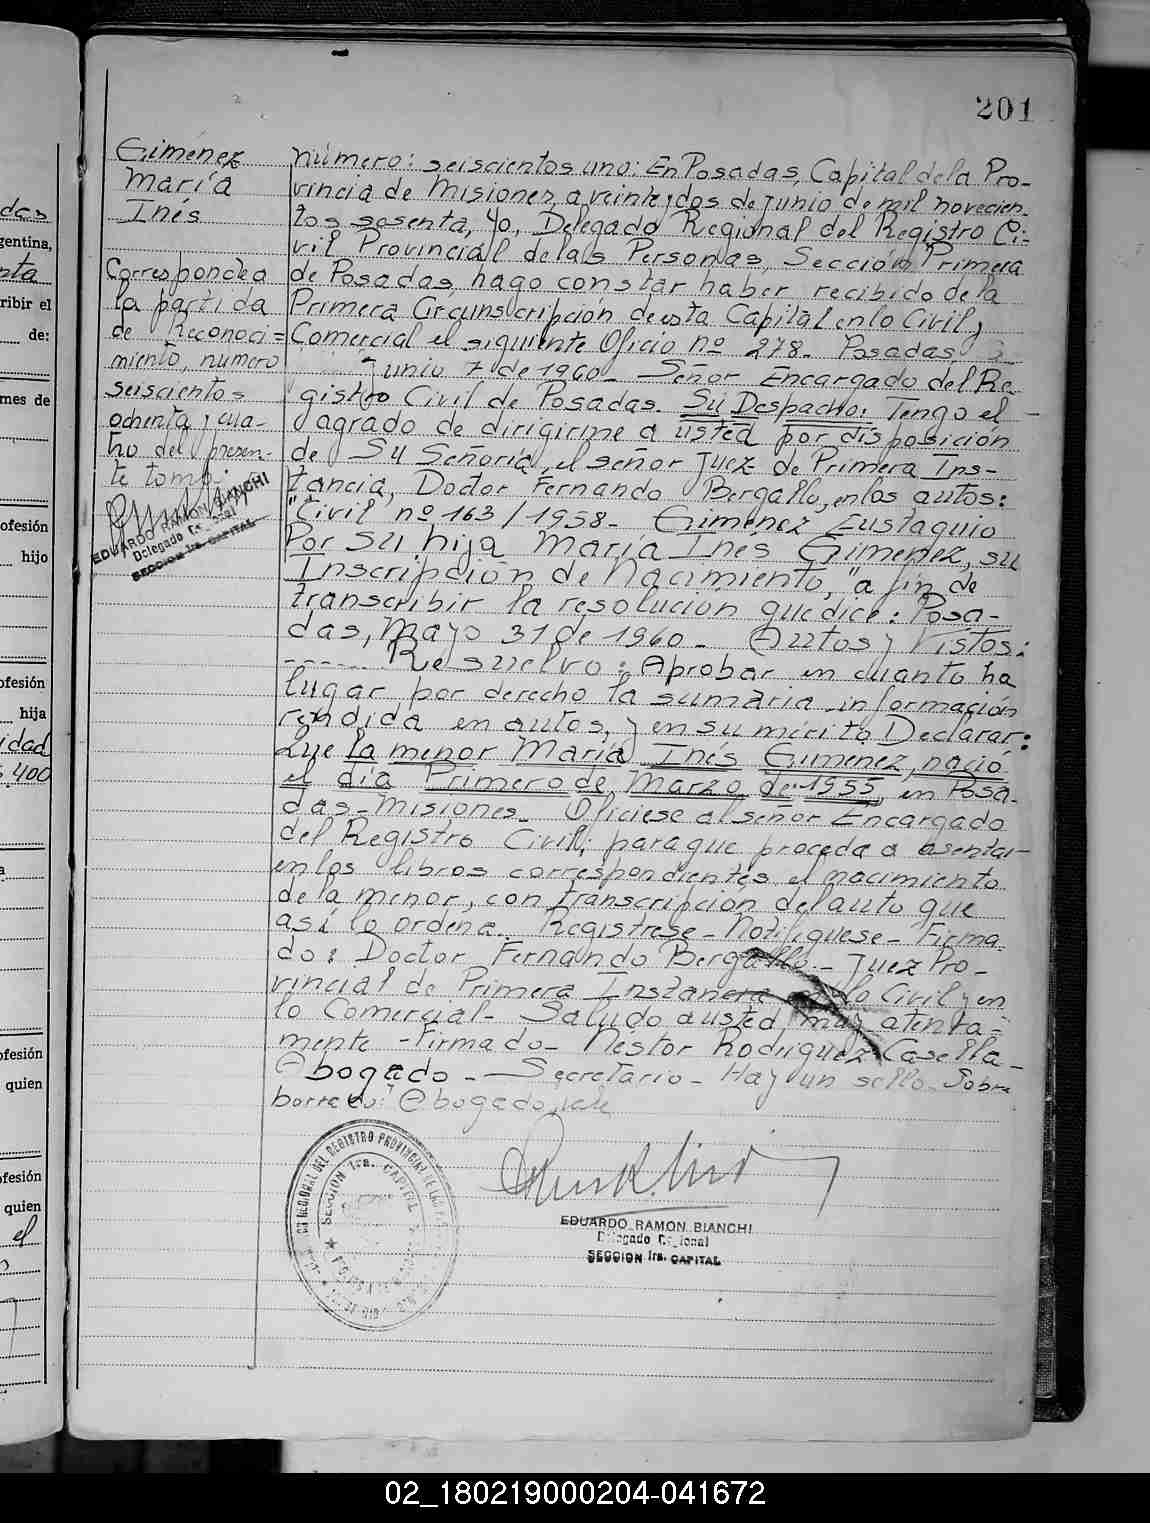 201
Giménez
María
Inés
Corresponde a
la partida
de Reconoci=
miento, numero
seiscientos
ochenta y cua-
tro del presen-
te tomo.
EDUARDO RAMON BIANCHI
Delegado Regional
SECCION 1ra. CAPITAL
Número: seiscientos uno: En Posadas, Capital de la Pro-
vincia de Misiones, a veinte y dos de junio de mil novecien-
tos sesenta, yo, Delegado Regional del Registro Ci-
vil Provincial de las Personas, Sección Primera
de Posadas, hago constar haber recibido de la
Primera Circunscripción de esta Capital en lo Civil y
Comercial el siguiente Oficio nº 278- Posadas
Junio 7 de 1960- Señor Encargado del Re-
gistro Civil de Posadas. Su Despacho: Tengo el
agrado de dirigirme a usted por disposición
de Su Señoria, el señor Juez de Primera Ins-
tancia, Doctor Fernando Bergallo, en los autos:
"Civil nº 163/1958- Giménez Eustaquio
Por su hija María Inés Gimenez, su
Inscripción de Nacimiento," a fin de
transcribir la resolución que dice: Posa-
das, Mayo 31 de 1960- Autos y Vistos:
------ Resuelvo: Aprobar en cuanto ha
lugar por derecho la sumaria información
rendida en autos, y en su mérito Declarar:
Que la menor María Inés Gimenez, nació
el día Primero de Marzo de 1955, en Posa-
das-Misiones- Ofíciese al señor Encargado
del Registro Civil, para que proceda a asentar
en los libros correspondientes el nacimiento
de la menor, con transcripción del auto que
así lo ordena. Registrese- Notifíquese- Firma-
do: Doctor Fernando Bergallo.- Juez Pro-
vincial de Primera Instancia en lo Civil y en
lo Comercial- Saludo a usted muy atenta=
mente -Firmado- Nestor Rodriguez Casella-
Abogado - Secretario- Hay un sello. Sobre
borrado: Abogado, vale
SECCION 1ra. CAPITAL
EDUARDO RAMON BIANCHI
Delegado Regional
SECCION 1ra. CAPITAL
gentina,
ribir el
de:
mes de
ofesión
hijo
ofesión
hija
idad
400
ofesión
quien
ofesión
quien
el
02_180219000204-041672